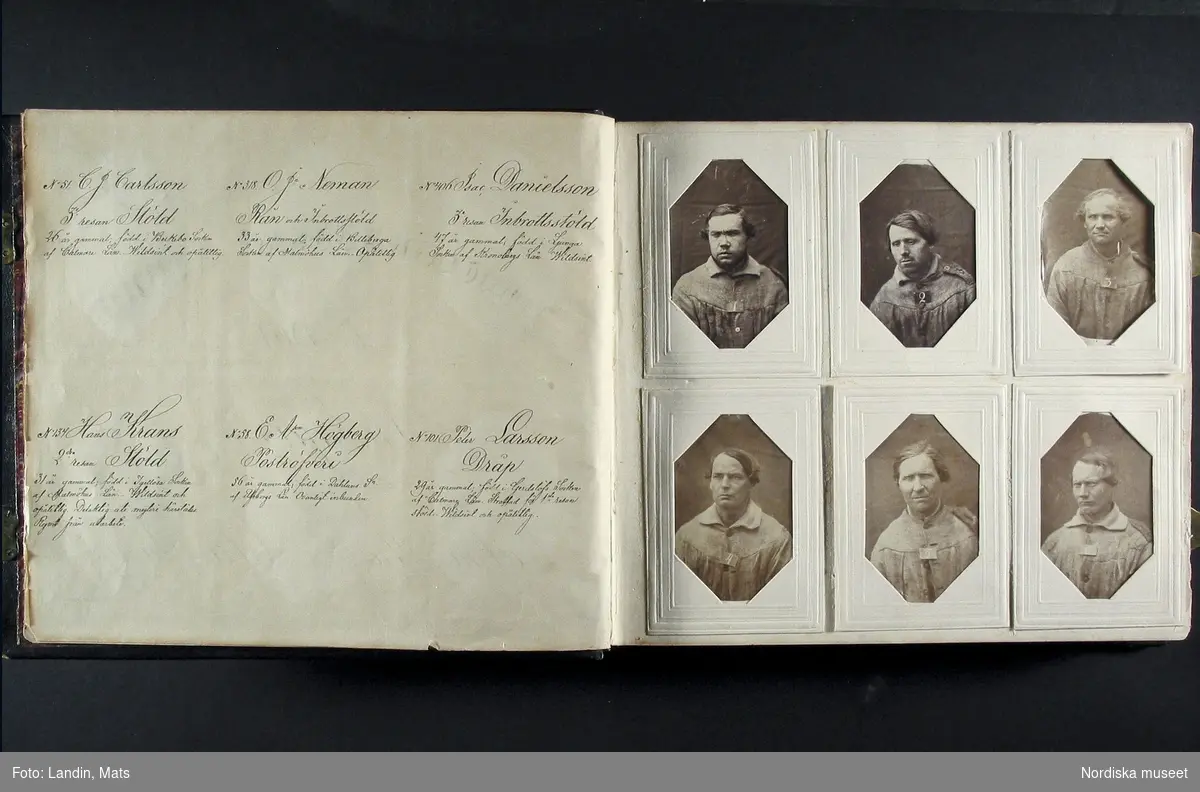 No 51. C J Carlsson
3e resan Stöld
26 år gammal, född i Socken
af Län. Wildsint och opålitlig.
No 318. O. Jns Neman
Rån och Inbrottsstöld
33 år gammal, född i Billinga
Socken af Malmöhus Län. Opålitlig
No 406 Isac Danielsson
3e resan Inbrottsstöld
47 år gammal, född i Ljunga
Socken af Kronobergs Län Wildsint
No 137 Hans Krans
2dra resan Stöld
31 år gammal, född i Socken
af Malmöhus Län. Wildsint och
opålitlig. Delaktig uti
Rymt från utarbete.
No 58. E. A. Högberg
Poströfveri
36 år gammal, född i Dahlens Sn
af Län
No 101 Peter Larsson
Dråp
29 år gammal, född i Socken
af Län. Straffad för 1sta resan
stöld. Wildsint och opålitlig.
2
3
Foto: Landin, Mats
Nordiska museet